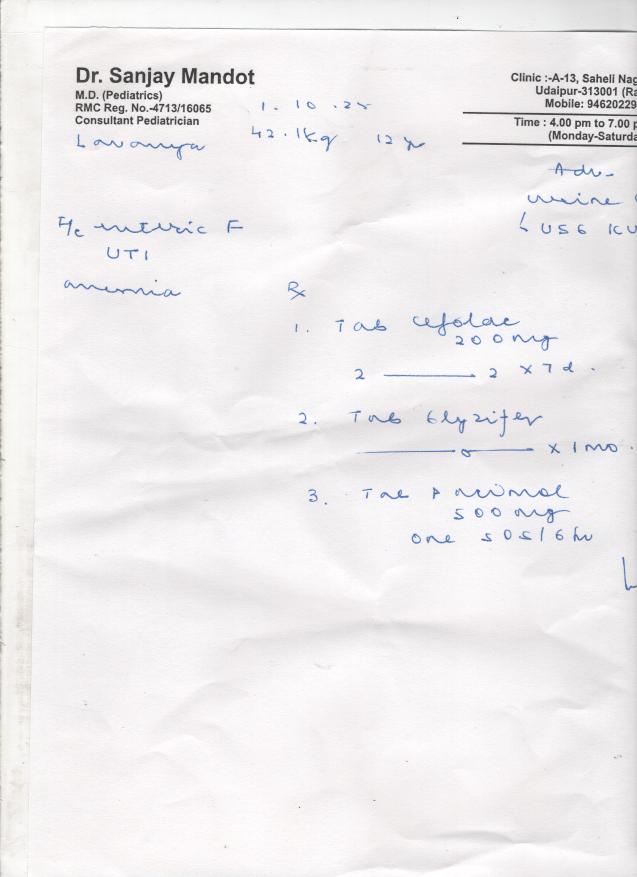 Dr. Sanjay Mandot
M.D. (Pediatrics)
RMC Reg. No.-4713/16065
Consultant Pediatrician
Clinic :-A-13, Saheli Nag
Udaipur-313001 (Ra
Mobile: 94620229
Time : 4.00 pm to 7.00 p
(Monday-Saturda
1. 10. 25
Lavanya 42.1kg 12 yr
Adv.
urine
USG KU
enteric F
UTI
anemia
Rx
1. Tab
200 mg
2 — 2 x 7 d.
2. Tab
x 1 mo.
3.
500 mg
one SOS/6 hr